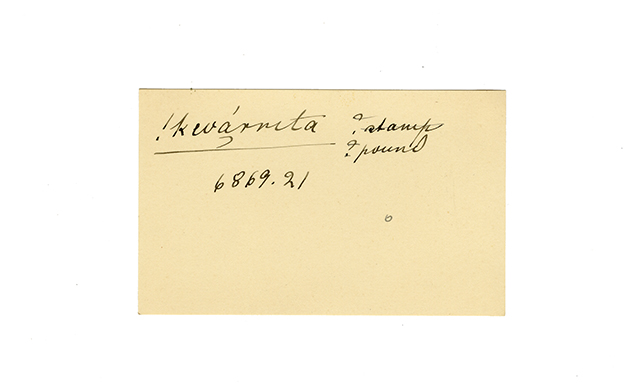 !kwárrıta ? stamp
? pound
6869.21